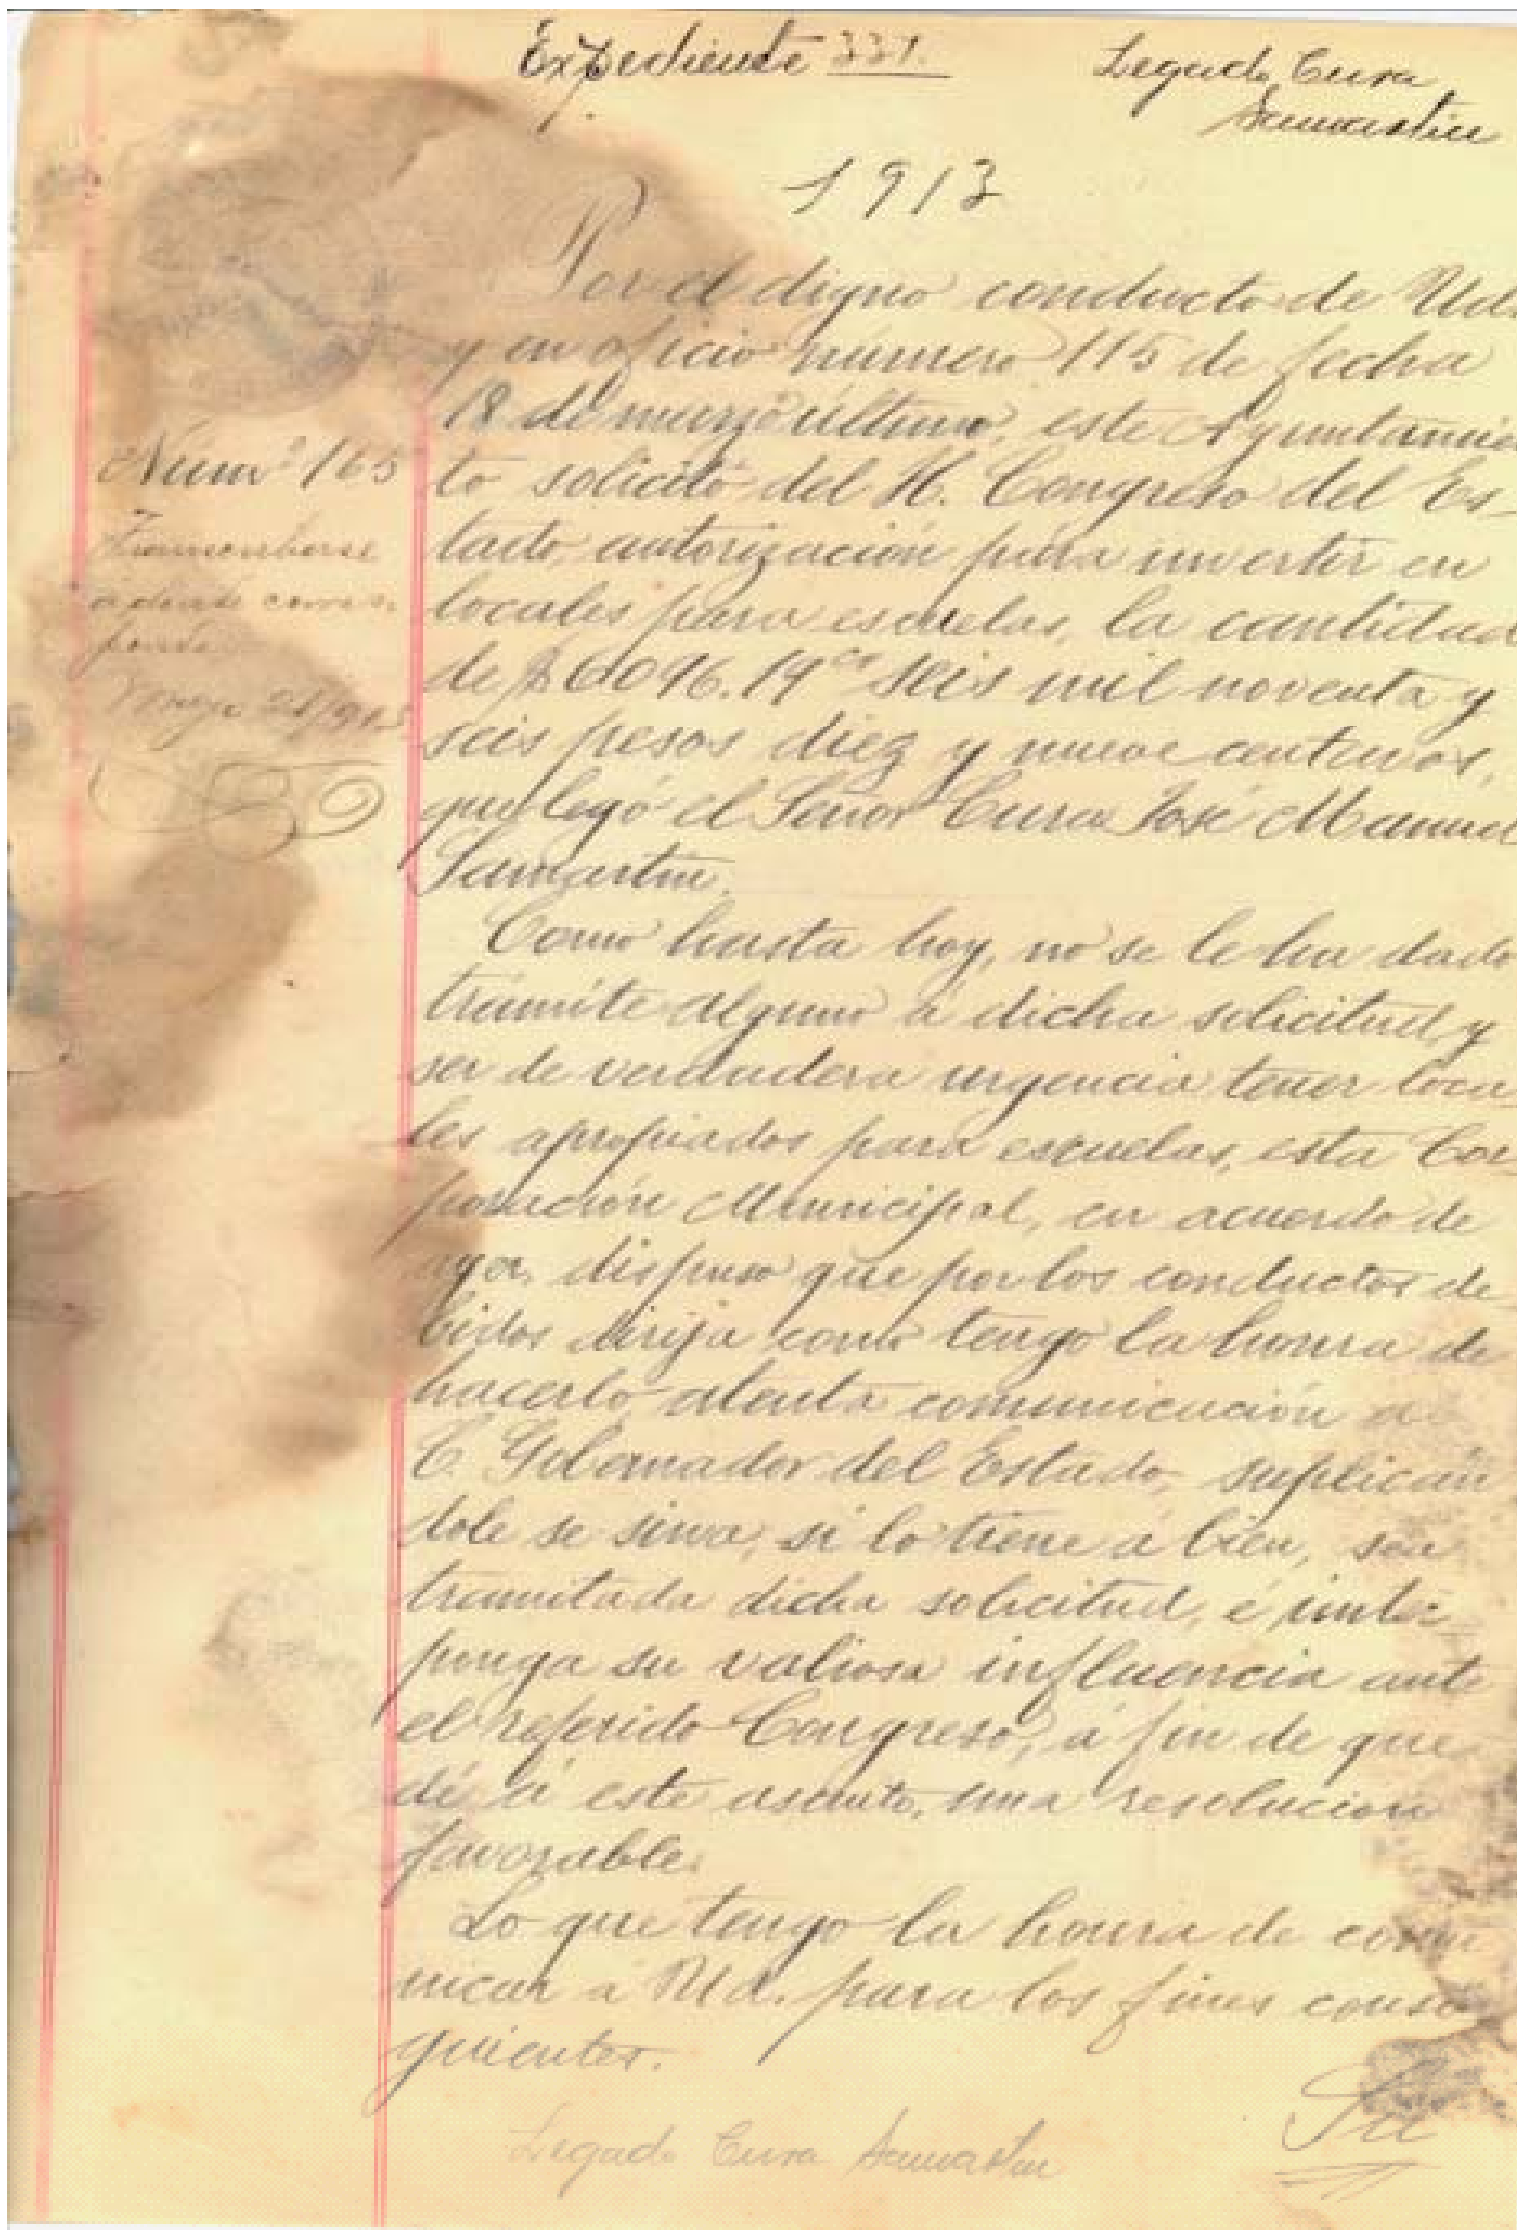 Expediente 331.
Legado Cura
Sanmartin
1913
Por el digno conducto de Ud.
y en oficio número 115 de fecha
18 de marzo último, este Ayuntamien
to solicitó del H. Congreso del Es-
tado, autorización para invertir en
locales para escuelas, la cantidad
de $6096.19 cs seis mil noventa y
seis pesos diez y nueve centavos,
que legó el Señor Cura José Manuel
Sanmartin.
Como hasta hoy, no se le ha dado
trámite alguno á dicha solicitud, y
ser de verdadera urgencia tener loca-
les apropiados para escuelas, esta Cor-
poración Municipal, en acuerdo de
ayer, dispuso que por los conductos de-
bidos dirija como tengo la honra de
hacerlo atenta comunicación al
C. Gobernador del Estado, suplicán
dole se sirva, si lo tiene á bien, sea
tramitada dicha solicitud, é inter
ponga su valiosa influencia ante
el referido Congreso, á fin de que
dé á este asunto, una resolución
favorable.
Lo que tengo la honra de comu
nicar á Ud. para los fines consi
guientes.
Núm. 165
Transcríbase
a donde corres-
ponde.
Mayo 21/913
Legado Cura Sanmartin